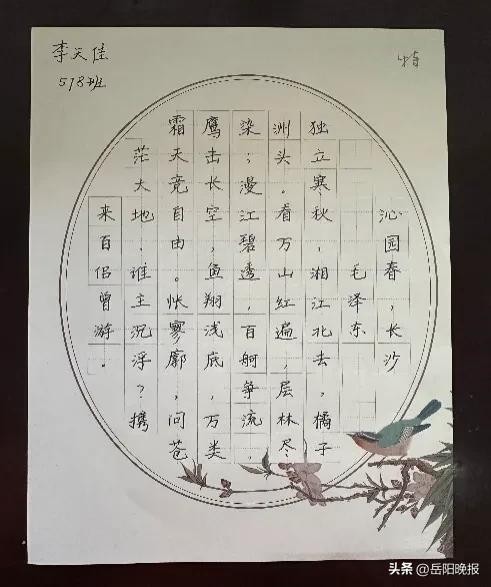 李天佳
578班
特
沁园春,长沙
毛泽东
独立寒秋,湘江北去,橘子
洲头。看万山红遍,层林尽
染;漫江碧透,百舸争流,
鹰击长空,鱼翔浅底,万类
霜天竞自由。怅寥廓,问苍
茫大地,谁主沉浮?携
来百侣曾游。
头条@岳阳晚报